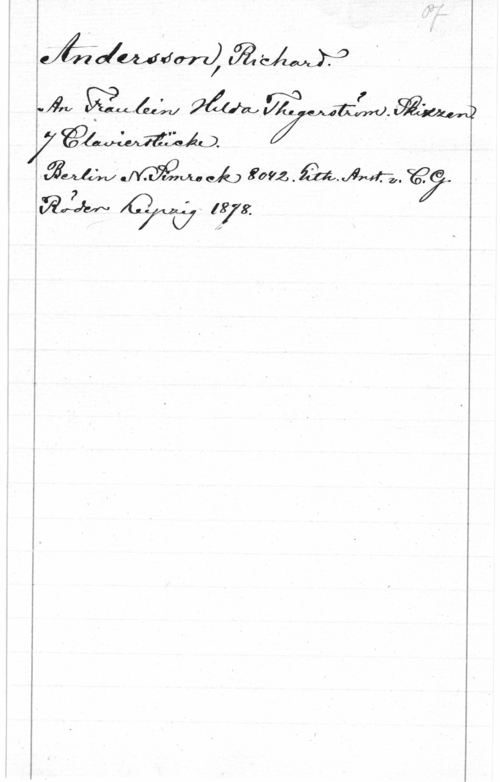 Andersson, Richard.
An Fräulein Hilda Thegerström. Skizzen
7 Clavierstücke.
Berlin N. Simrock 8042. Lith. Anst. v. C. G.
Röder Leipzig 1878.